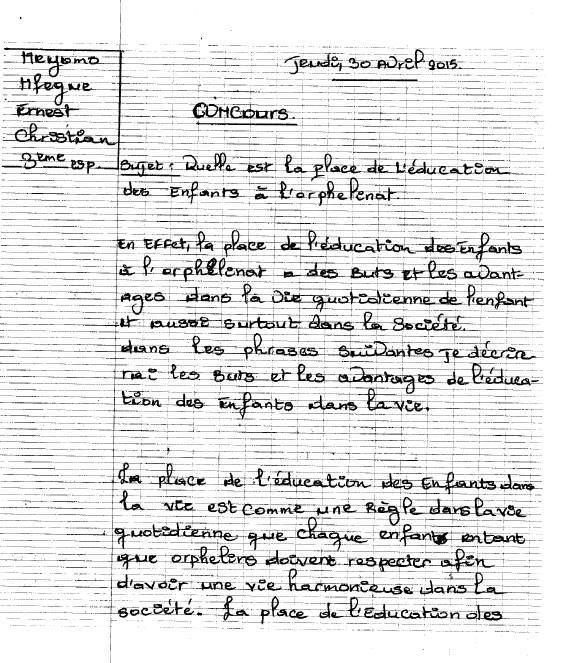 Meyomo
Mfegue
Ernest
Christian
3eme esp.
Jeudi, 30 Avril 2015.
Concours.
Sujet : Quelle est la place de l'éducation
des Enfants à l'orphelinat.
En Effet, la place de l'éducation des Enfants
à l'orphélinat a des Buts et les avant-
ages dans la vie quotidienne de l'enfant
et aussi surtout dans la Société.
dans les phrases suivantes je décrire
rai les Buts et les avantages de l'éduca-
tion des Enfants dans la vie.
La place de l'éducation des Enfants dans
la vie est comme une Règle dans la vie
quotidienne que chaque enfants entant
que orphelins doivent respecter afin
d'avoir une vie harmonieuse dans la
société. La place de l'Education des